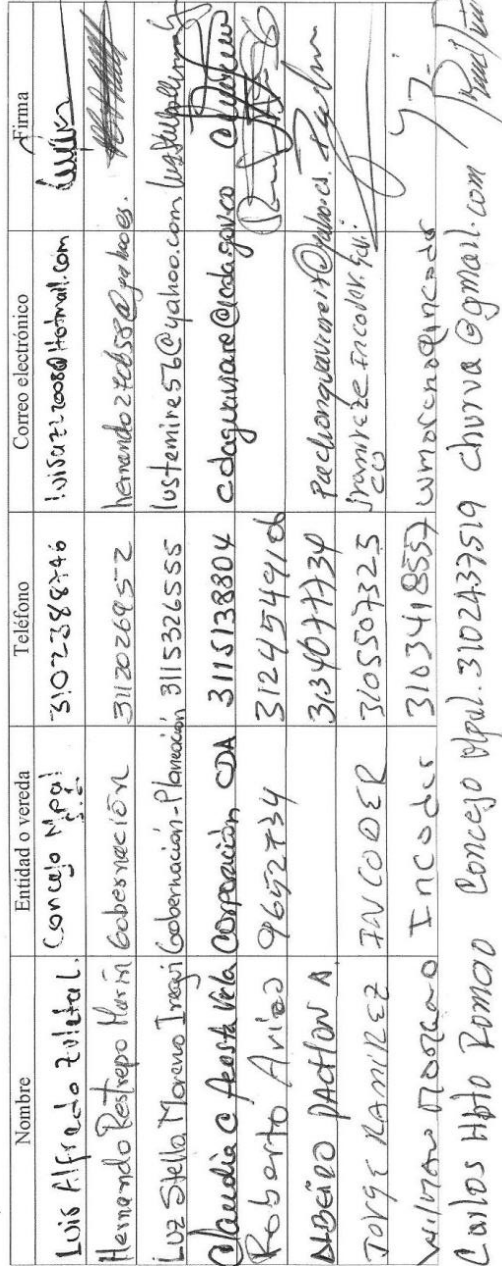 Nombre Entidad o vereda Teléfono Correo electrónico Firma
Luis Alfredo Zuletal. Concejo Mpal 3102388746 luisazl2008@Hotmail.com
Hernando Restrepo Marín Gobernación 3112026952 hernando27058@yahoo.es.
Luz Stella Moreno Gobernación-Planeación 3115326555 lustemire56@yahoo.com
Claudia C Acosta Vela Corporación CDA 3115138804 cdaguaviare@cda.gov.co
Roberto Ariza 9652734 3124554910
Albeiro PACHON A 3134077734
JORGE RAMIREZ INCODER 3105507325
Wilmar Moreno Incoder 3103418557 wmoreno@incoder
Carlos Hbto Romero Concejo Mpal. 3102437519 churva@gmail.com